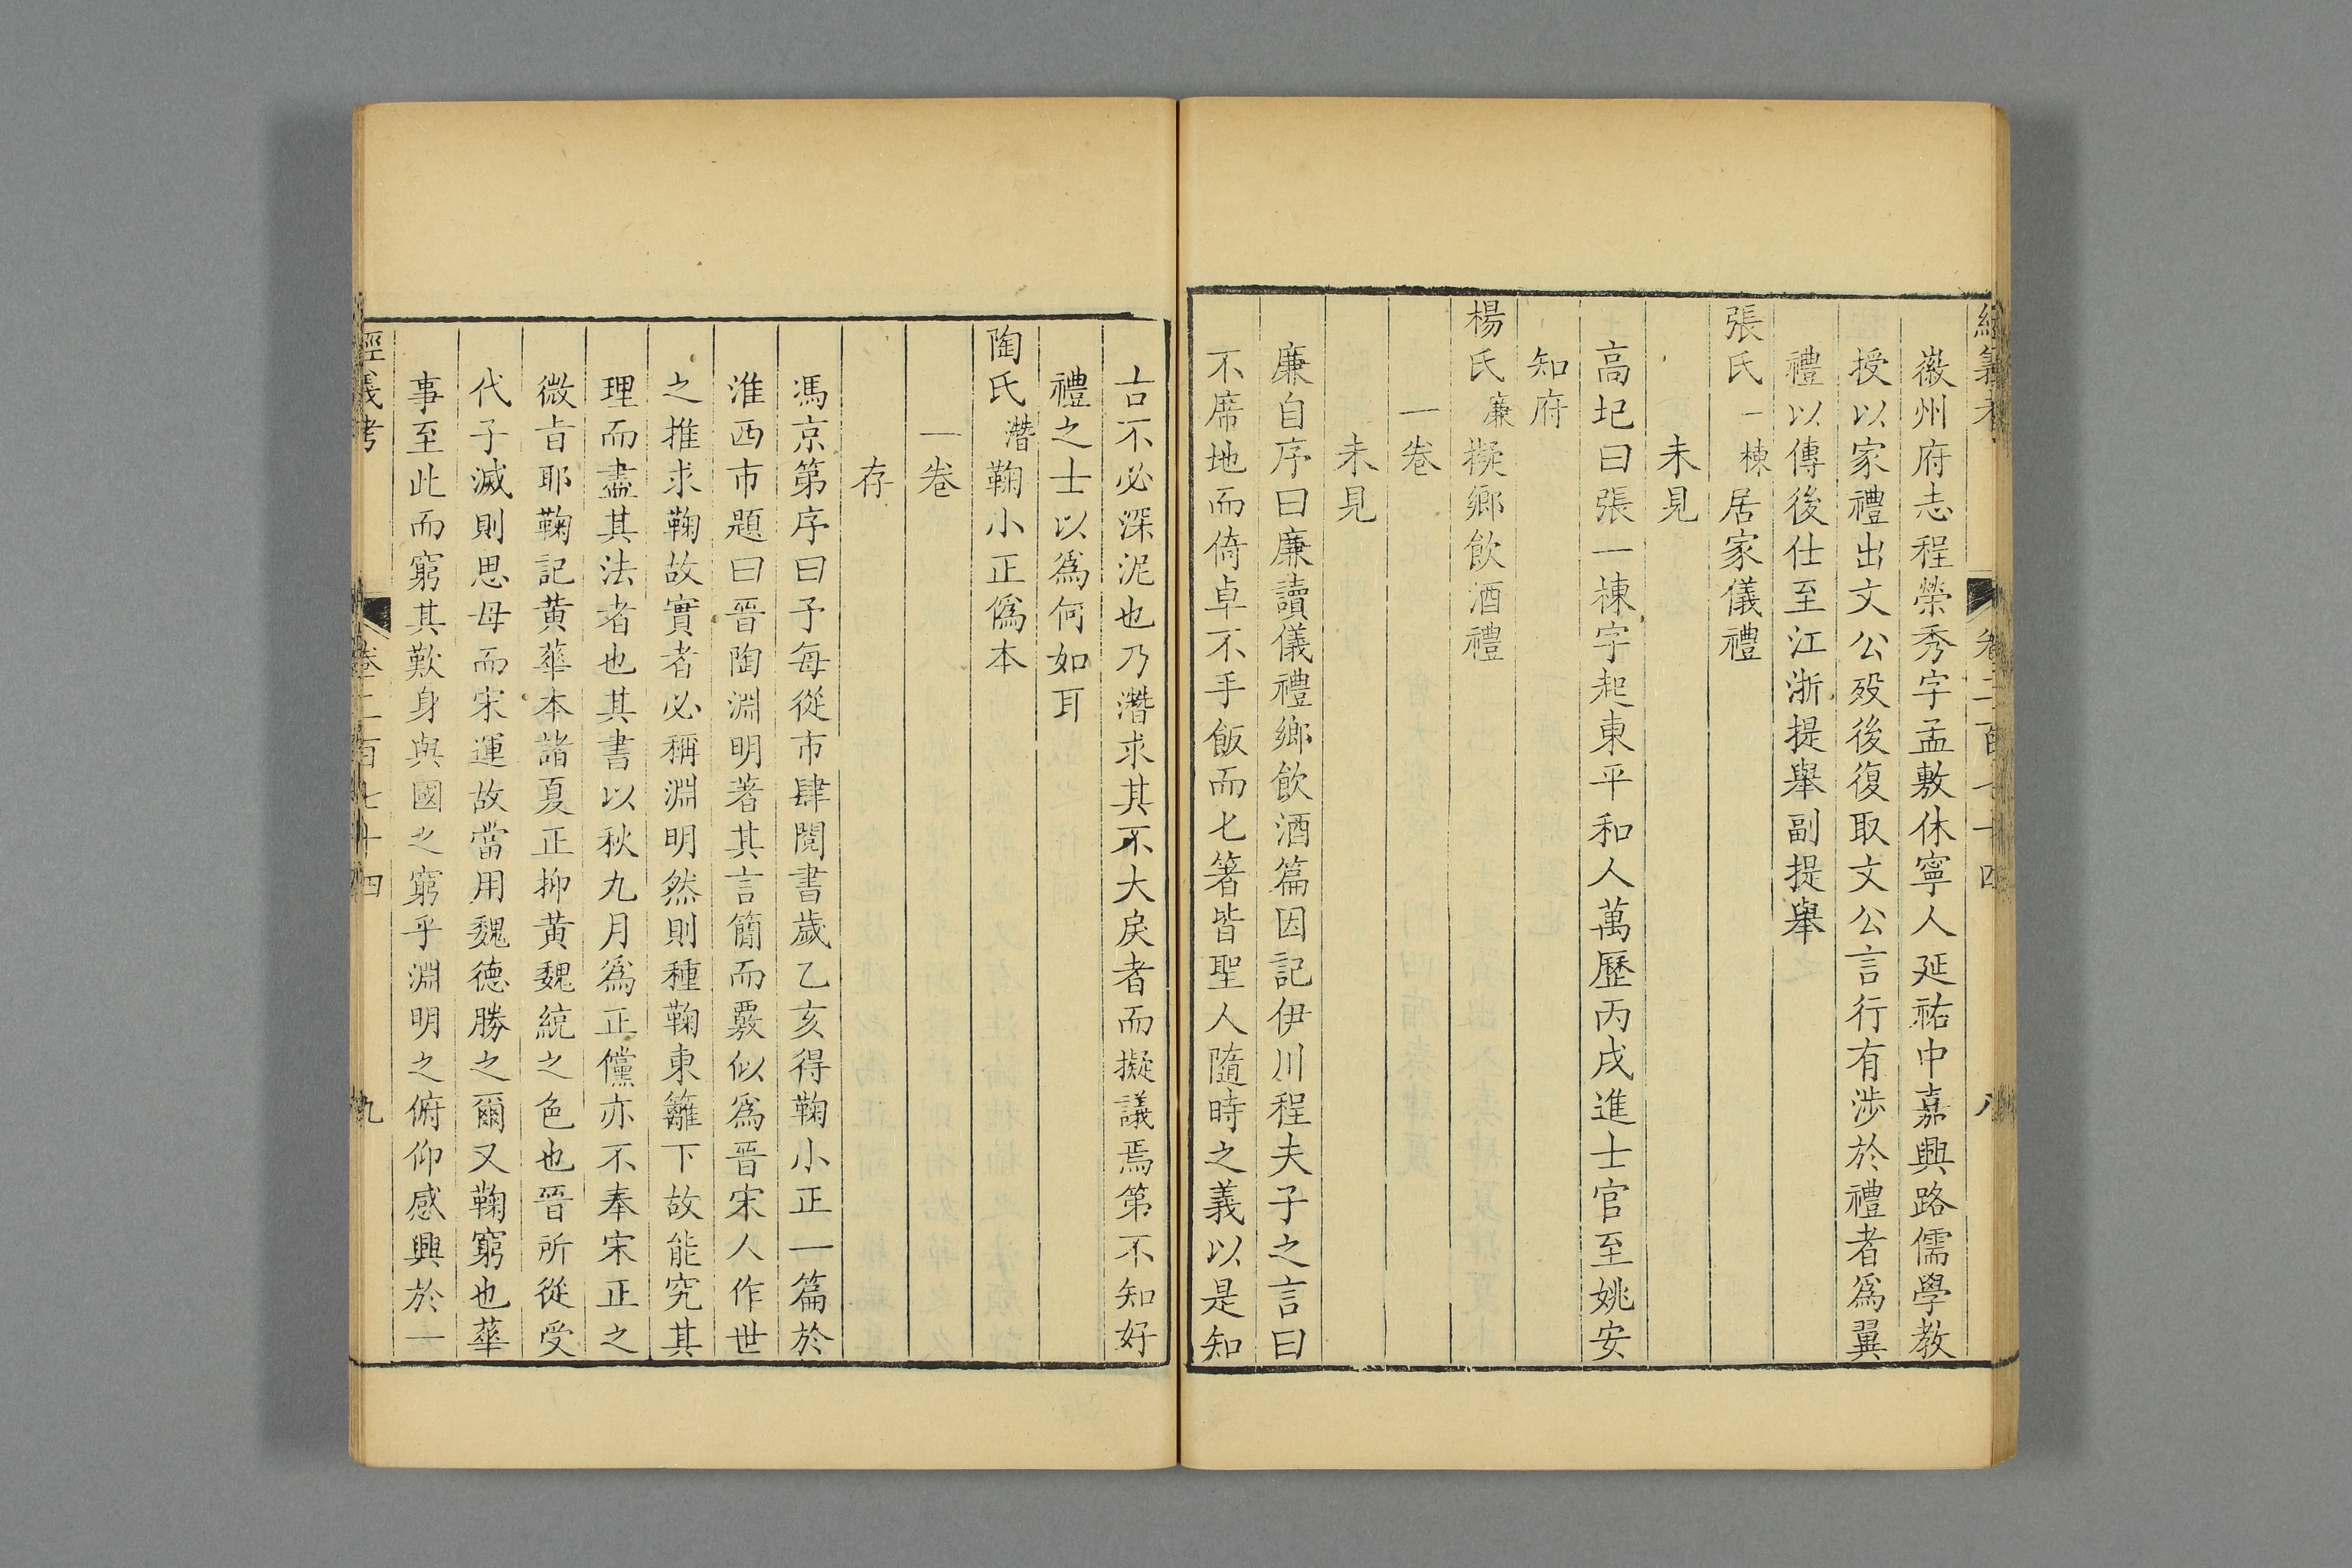 經義考 卷二百七十四 八
徽州府志程榮秀字孟敷休寧人延祐中嘉興路儒學教
授以家禮出文公歿後復取文公言行有涉於禮者爲翼
禮以傳後仕至江浙提舉副提舉
張氏一棟居家儀禮
未見
高圮曰張一棟字起東平和人萬歷丙戌進士官至姚安
知府
楊氏廉擬鄉飲酒禮
一卷
未見
廉自序曰廉讀儀禮鄉飲酒篇因記伊川程夫子之言曰
不席地而倚卓不手飯而匕箸皆聖人隨時之義以是知
古不必深泥也乃潛求其不大戾者而擬議焉第不知好
禮之士以爲何如耳
陶氏潛鞠小正僞本
一卷
存
馮京第序曰予每從市肆閱書歲乙亥得鞠小正一篇於
淮西市題曰晉陶淵明著其言簡而覈似爲晉宋人作世
之推求鞠故實者必稱淵明然則種鞠東籬下故能究其
理而盡其法者也其書以秋九月爲正儻亦不奉宋正之
微旨耶鞠記黄蕐本諸夏正抑黄魏統之色也晉所從受
代子滅則思母而宋運故當用魏德勝之爾又鞠窮也蕐
事至此而窮其歎身與國之窮乎淵明之俯仰感興於一
經義考 卷二百七十四 九